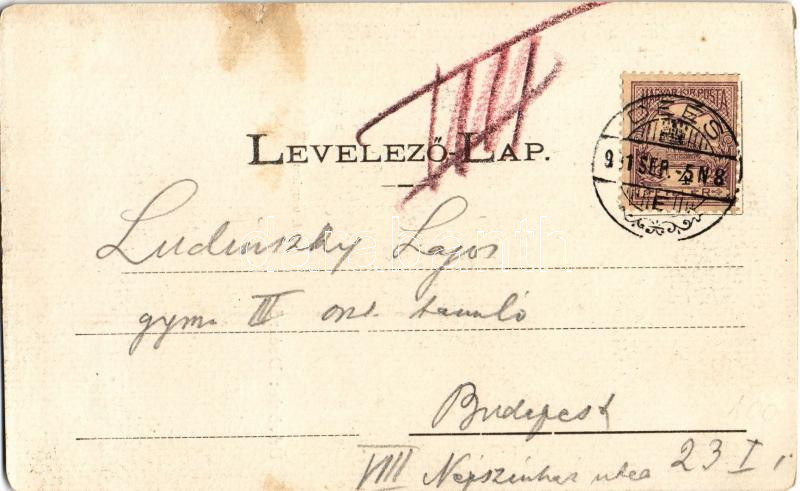 MAGYAR KIR. POSTA
DEÉS
9 1 SEP. -5 N 8
E
LEVELEZŐ-LAP.
Ludinszky Lajos
gym. III oszt. tanuló
Budapest
VIII Népszinház utca 23 I.